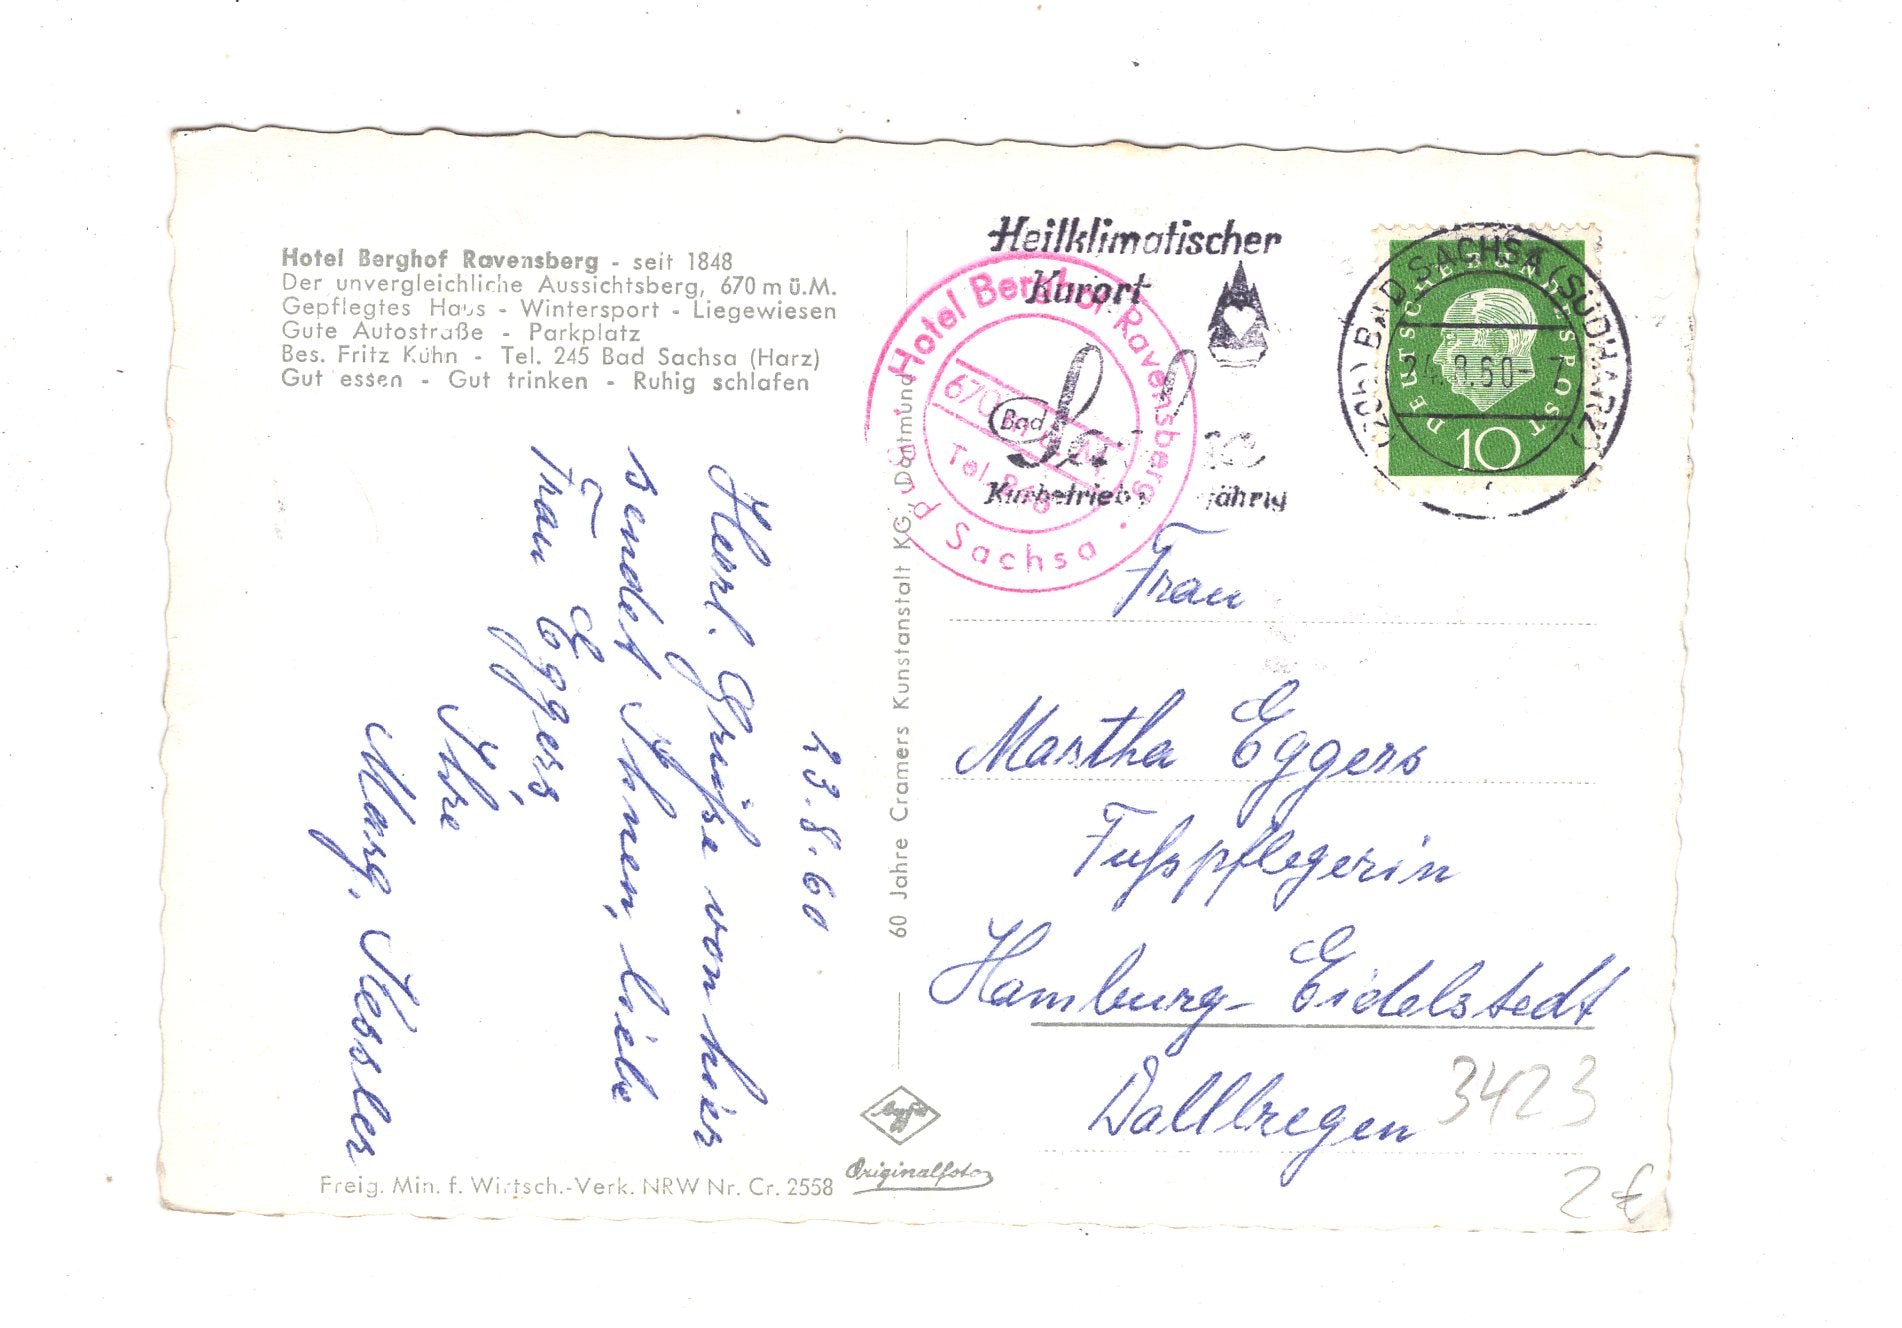 Hotel Berghof Ravensberg - seit 1848
Der unvergleichliche Aussichtsberg, 670 m ü.M.
Gepflegtes Haus - Wintersport - Liegewiesen
Gute Autostraße - Parkplatz
Bes. Fritz Kühn - Tel. 245 Bad Sachsa (Harz)
Gut essen - Gut trinken - Ruhig schlafen
23.8.60
Herzl. Grüße von hier
sendet Ihnen, liebe
Frau Eggers,
Ihre
Marg. Kessler
Freig. Min. f. Wirtsch.-Verk. NRW Nr. Cr. 2558
60 Jahre Cramers Kunstanstalt KG, Dortmund
Agfa
Originalfoto
Heilklimatischer
Kurort
Bad
Kurbetrieb
jährig
Hotel Berghof Ravensberg
670
Tel.
Bad Sachsa
BAD SACHSA (SÜDHARZ)
24.8.60-7
DEUTSCHE BUNDESPOST
10
Frau
Martha Eggers
Fußpflegerin
Hamburg-Eidelstedt
Dallbregen
3423
2 €